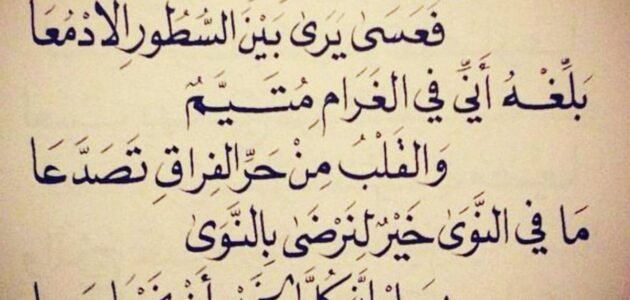 فَعَسَىٰ يَرَىٰ بَيْنَ السُّطُورِ الأَدْمُعَا
بَلِّغْهُ أَنِّي فِي الغَرَامِ مُتَيَّمٌ
وَالقَلْبُ مِنْ حَرِّ الفِرَاقِ تَصَدَّعَا
مَا فِي النَّوَىٰ خَيْرٌ لِنَرْضَىٰ بِالنَّوَىٰ